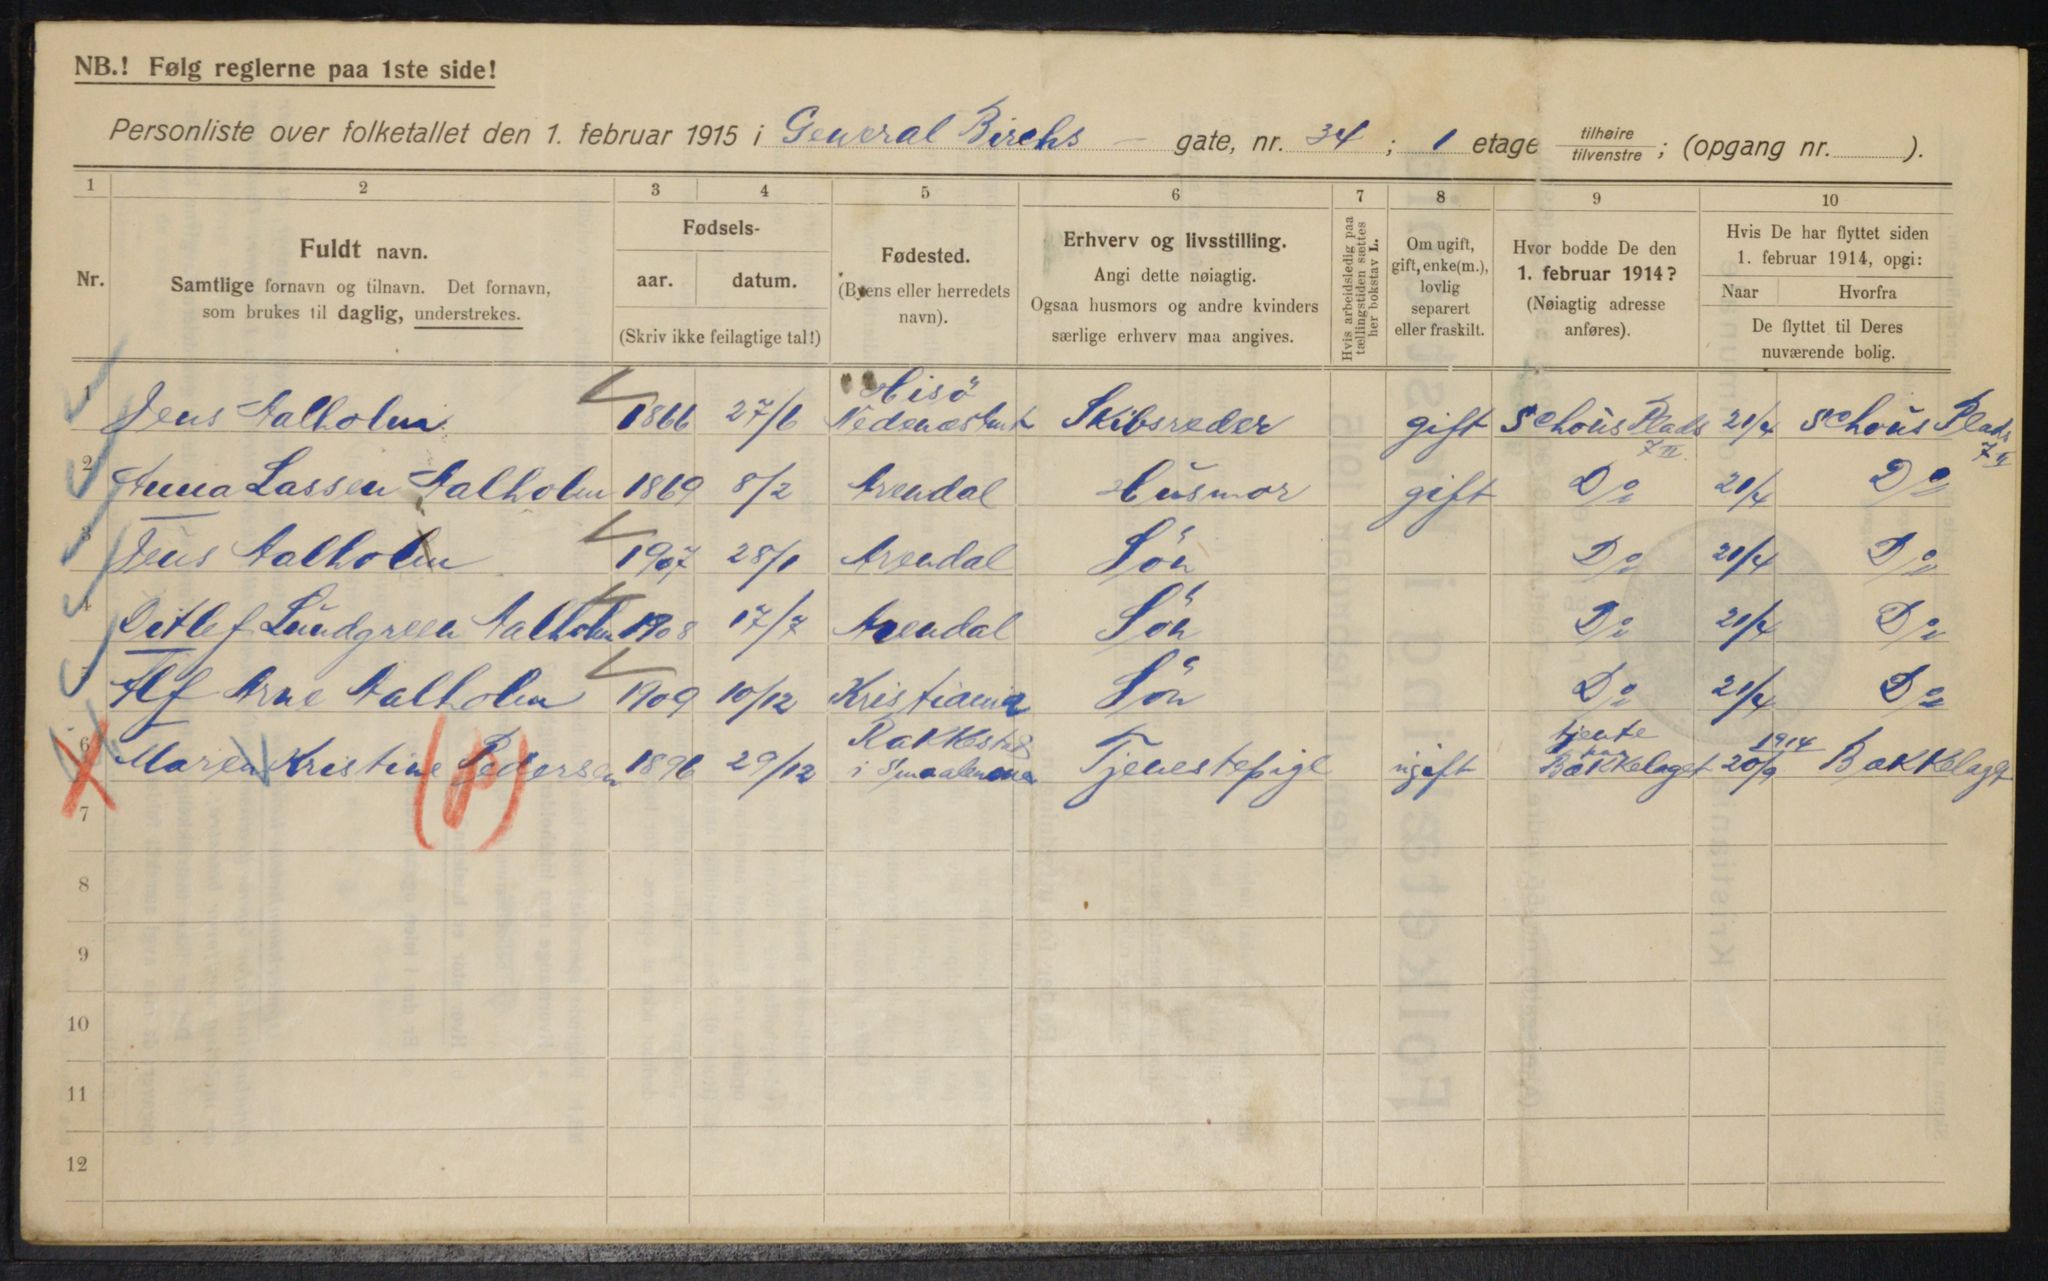 NB.! Følg reglerne paa 1ste side!
Personliste over folketallet den 1. februar 1915 i General Birchs - gate, nr. 34 ; 1 etage tilhøire tilvenstre ; (opgang nr. ).
1 2 3 4 5 6 7 8 9 10
Nr.
Fuldt navn.
Samtlige fornavn og tilnavn. Det fornavn,
som brukes til daglig, understrekes.
Fødsels-
aar. datum.
(Skriv ikke feilagtige tal!)
Fødested.
(Byens eller herredets
navn).
Erhverv og livsstilling.
Angi dette nøiagtig.
Ogsaa husmors og andre kvinders
særlige erhverv maa angives.
Hvis arbeidsledig paa
tællingstiden sættes
her bokstav L.
Om ugift,
gift, enke(m.),
lovlig
separert
eller fraskilt.
Hvor bodde De den
1. februar 1914?
(Nøiagtig adresse
anføres).
Hvis De har flyttet siden
1. februar 1914, opgi:
Naar Hvorfra
De flyttet til Deres
nuværende bolig.
1 Jens Aalholm 1866 27/6 Hisö Nedenæs Amt Skibsreder gift Schous Plads 7 II 21/4 Schous Plads 7 II
2 Anna Lassen Aalholm 1869 8/2 Arendal Husmor gift Do 21/4 Do
3 Jens Aalholm 1907 28/1 Arendal Sön Do 21/4 Do
4 Ditlef Lundgreen Aalholm 1908 17/7 Arendal Sön Do 21/4 Do
5 Alf Arne Aalholm 1909 10/12 Kristiania Sön Do 21/4 Do
6 Maren Kristine Pedersen 1896 29/12 Rakkestad i Smaalenene Tjenestepige ugift tjente paa Bækkelaget 20/9 1914 Bækkelaget
7
8
9
10
11
12